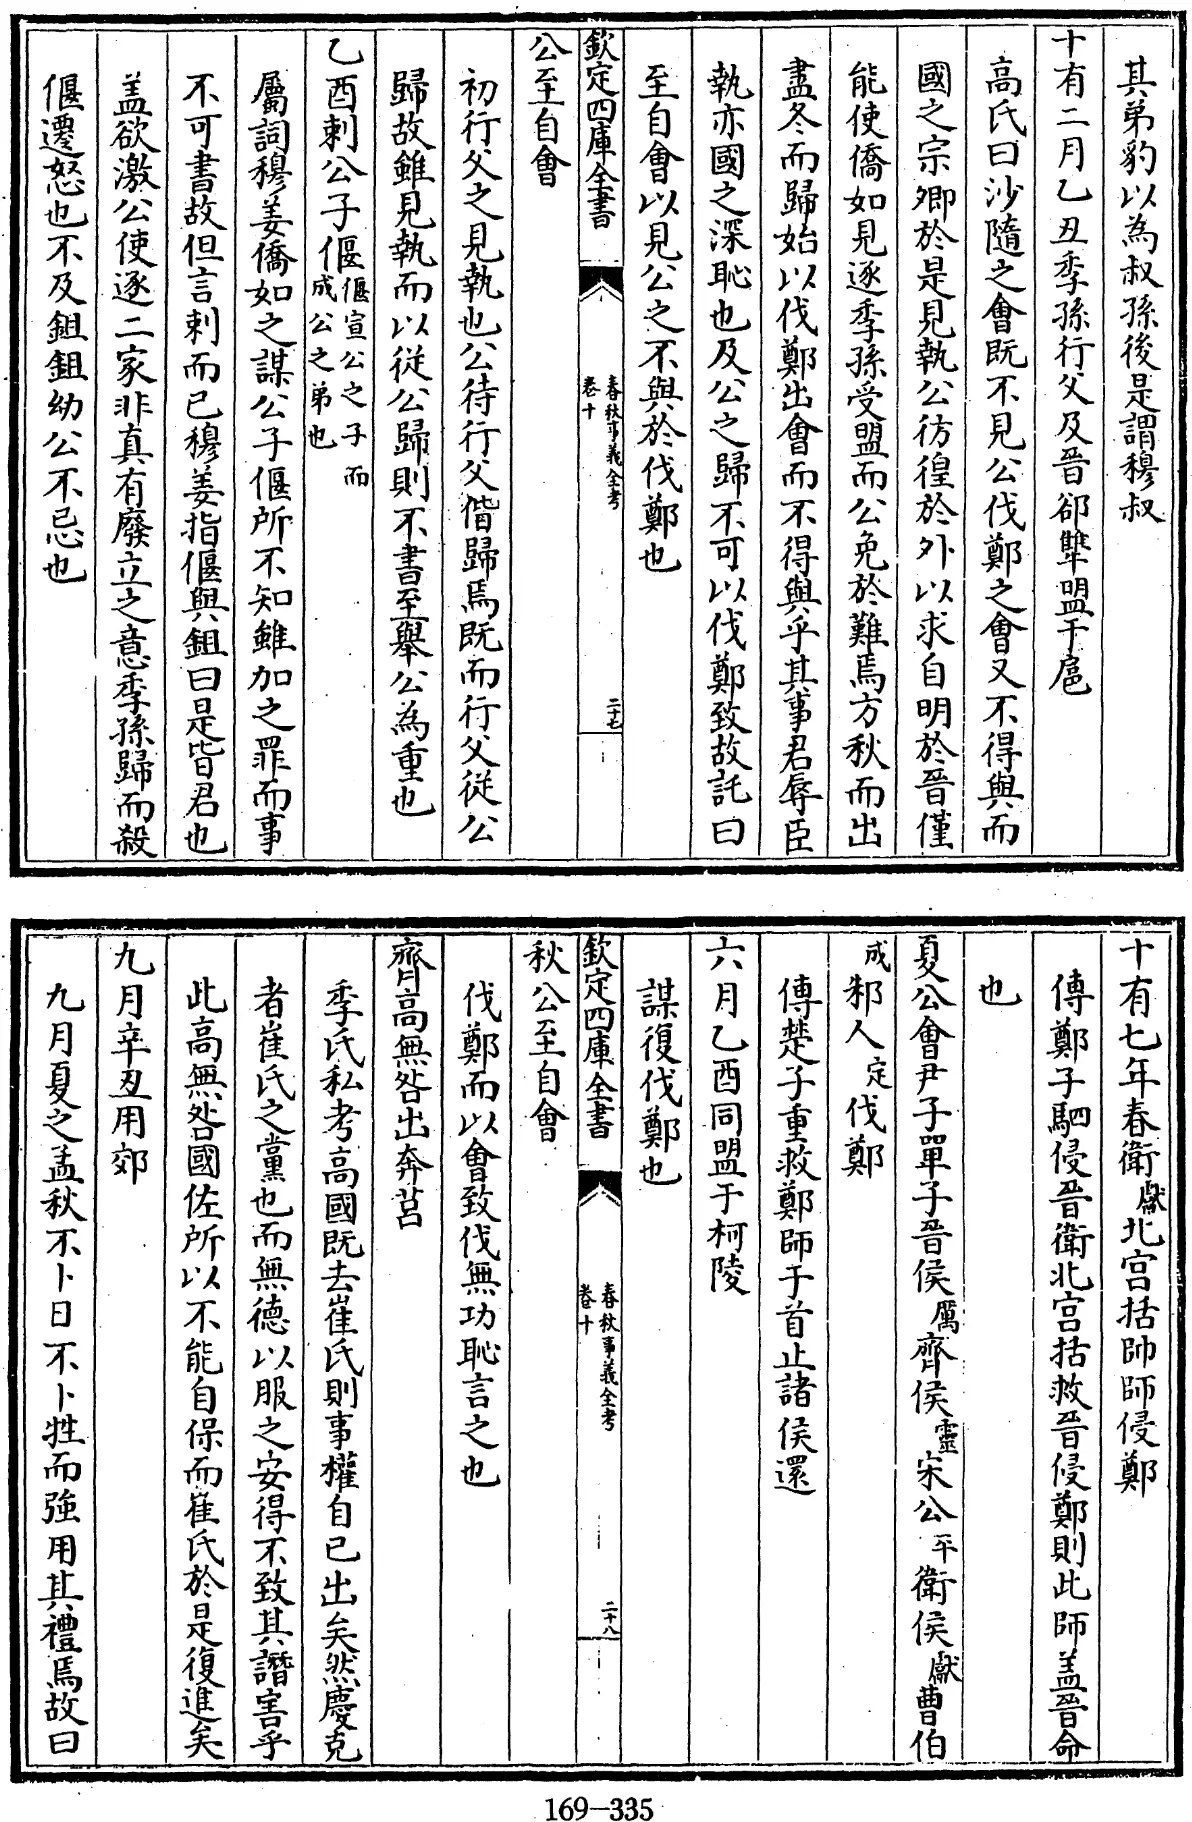 其弟豹以為叔孫後是謂穆叔
十有二月乙丑季孫行父及晉郤犨盟于扈
高氏曰沙隨之會既不見公伐鄭之會又不得與而
國之宗卿於是見執公彷徨於外以求自明於晉僅
能使僑如見逐季孫受盟而公免於難焉方秋而出
盡冬而歸始以伐鄭出會而不得與乎其事君辱臣
執亦國之深恥也及公之歸不可以伐鄭致故託曰
至自會以見公之不與於伐鄭也
欽定四庫全書
春秋事義全考
卷十
二十七
公至自會
初行父之見執也公待行父偕歸焉既而行父從公
歸故雖見執而以從公歸則不書至舉公為重也
乙酉刺公子偃偃宣公之子而成公之弟也
屬詞穆姜僑如之謀公子偃所不知雖加之罪而事
不可書故但言刺而已穆姜指偃與鉏曰是皆君也
盖欲激公使逐二家非真有廢立之意季孫歸而殺
偃遷怒也不及鉏鉏幼公不忌也
十有七年春衛獻北宮括帥師侵鄭
傳鄭子駟侵晉衛北宮括救晉侵鄭則此師盖晉命
也
夏公會尹子單子晉侯厲齊侯靈宋公平衛侯獻曹伯
成邾人定伐鄭
傳楚子重救鄭師于首止諸侯還
六月乙酉同盟于柯陵
謀復伐鄭也
欽定四庫全書
春秋事義全考
卷十
二十八
秋公至自會
伐鄭而以會致伐無功恥言之也
齊高無咎出奔莒
季氏私考高國既去崔氏則事權自已出矣然慶克
者崔氏之黨也而無德以服之安得不致其譖害乎
此高無咎國佐所以不能自保而崔氏於是復進矣
九月辛丑用郊
九月夏之孟秋不卜日不卜牲而強用其禮焉故曰
169-335